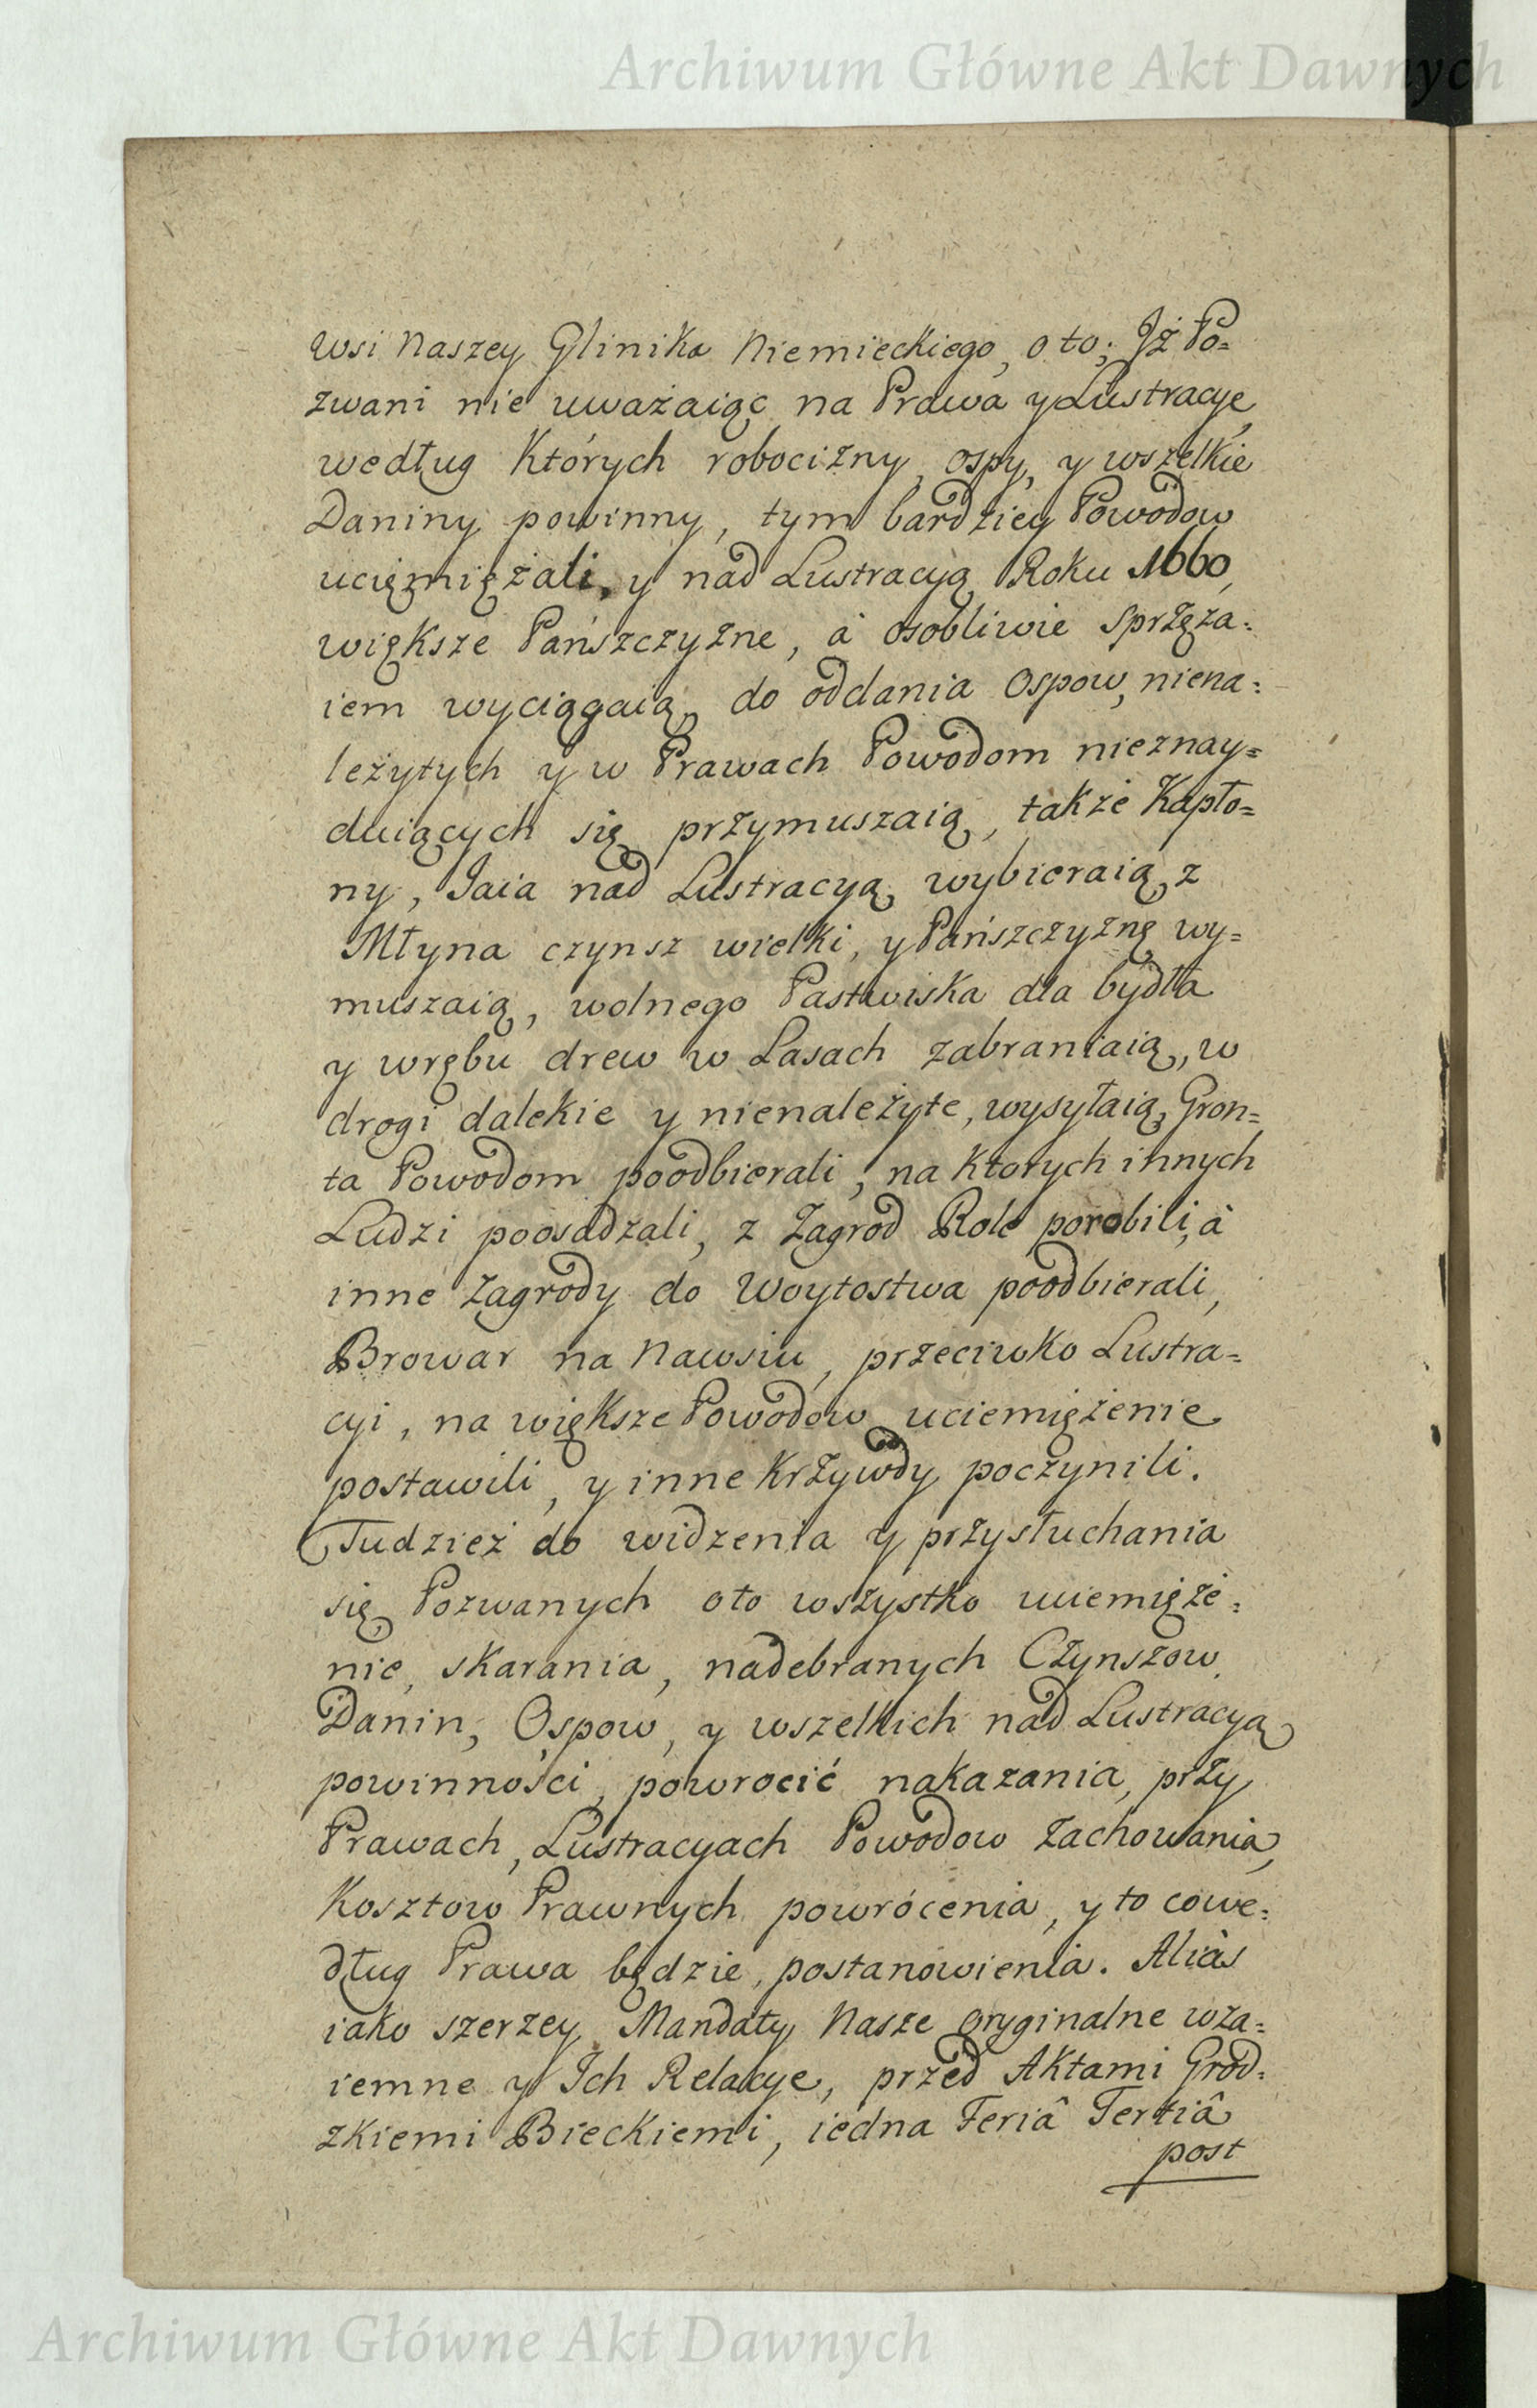 Archiwum Główne Akt Dawnych
wsi naszey Glinika Niemieckiego, o to; Jż Po=
zwani nie uważaiąc na Prawa y Lustracye,
według Których robocizny, ospy, y wszelkie
Daniny powinny, tym bardziey Powodow
ucięmiężali, y nad Lustracyą Roku 1660,
większe Pańszczyzne, à osobliwie sprzęża=
iem wyciągaią, do oddania Ospow, niena=
leżytych y w Prawach Powodom nieznay=
duiących się przymuszaią, także Kapło=
ny, Jaia nad Lustracyą wybieraią, z
Młyna czynsz wielki, y Pańszczyznę wy=
muszaią, wolnego Pastwiska dla bydła
y wrębu drew w Lasach zabraniaią, w
drogi dalekie y nienależyte, wysyłaią, Gron=
ta Powodom poodbierali, na Ktorych innych
Ludzi poosadzali, z Zagrod Role porobili, à
inne Zagrody do Woytostwa poodbierali,
Browar na Nawsiu, przeciwko Lustra=
cyi, na większe Powodow uciemiężenie
postawili, y inne Krzywdy poczynili.
Tudzież do widzenia y przysłuchania
się Pozwanych oto wszystko uciemięże=
nie, skarania, nadebranych Czynszow,
Danin, Ospow, y wszelkich nad Lustracyą
powinności, powrocić nakazania, przy
Prawach, Lustracyach Powodow zachowania,
Kosztow Prawnych powrócenia, y to cowe=
dług Prawa będzie, postanowienia. Aliàs
iako szerzey Mandaty Nasze oryginalne wza=
iemne y Jch Relacye, przed Aktami Grod=
zkiemi Bieckiemi, iedna Feriâ Tertiâ
post
Archiwum Główne Akt Dawnych